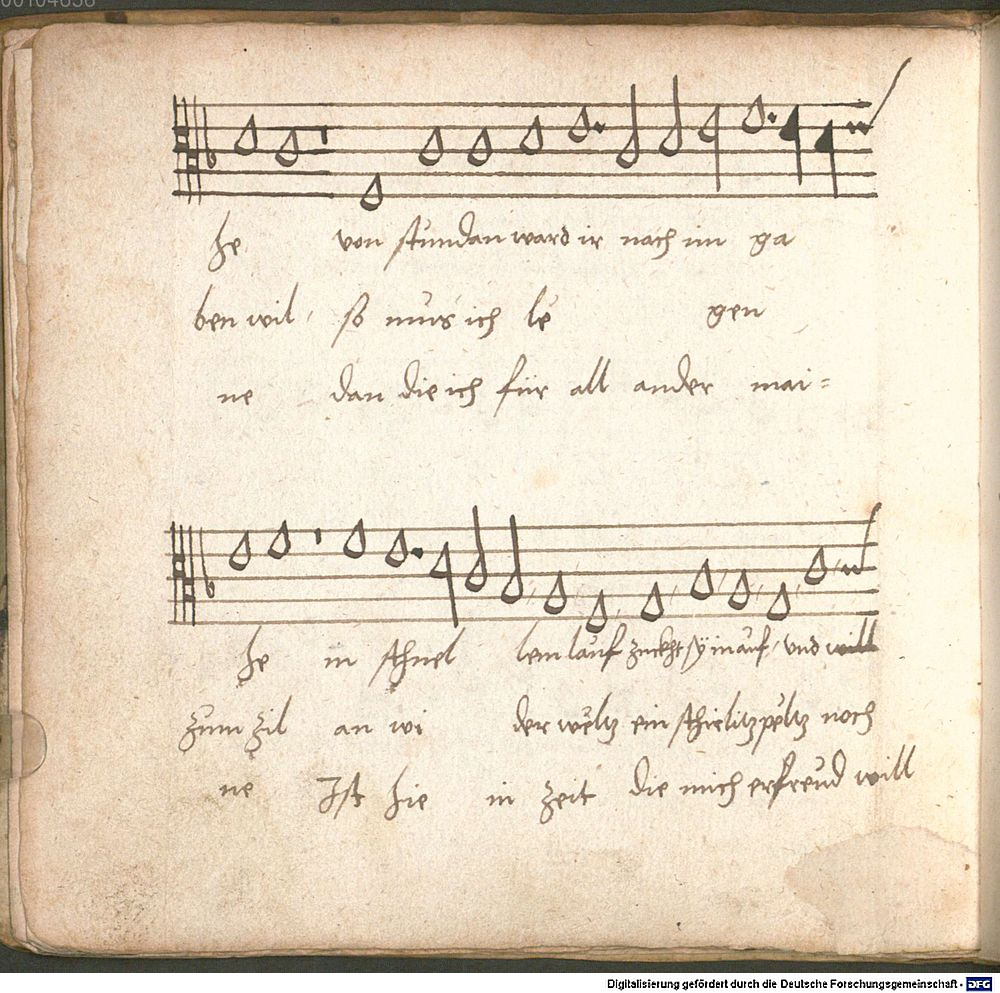 00104638
he von stundan ward ir nach im ga
ben wil so muͤs ich le gen
ne dan die ich für all ander mai=
he in schnel lem lauf zuckht sÿ in auf und will
zum zil an wi der weltz ein schielitz peltz noch
ne Ist hie in zeit die mich erfreud will
Digitalisierung gefördert durch die Deutsche Forschungsgemeinschaft - DFG